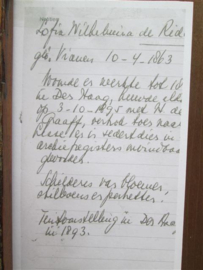 Sofia Wilhelmina de Rid
geb. Vianen 10-4-1863
Woonde en werkte tot 18
in Den Haag, huwde
op 3-10-1895 met H. de
Graaff, vertrok toen naar
en is sedertdien in
archiefregisters
geworden.
Schilderes van bloemen,
stillevens en portretten.
Tentoonstelling in Den Haag
in 1893.